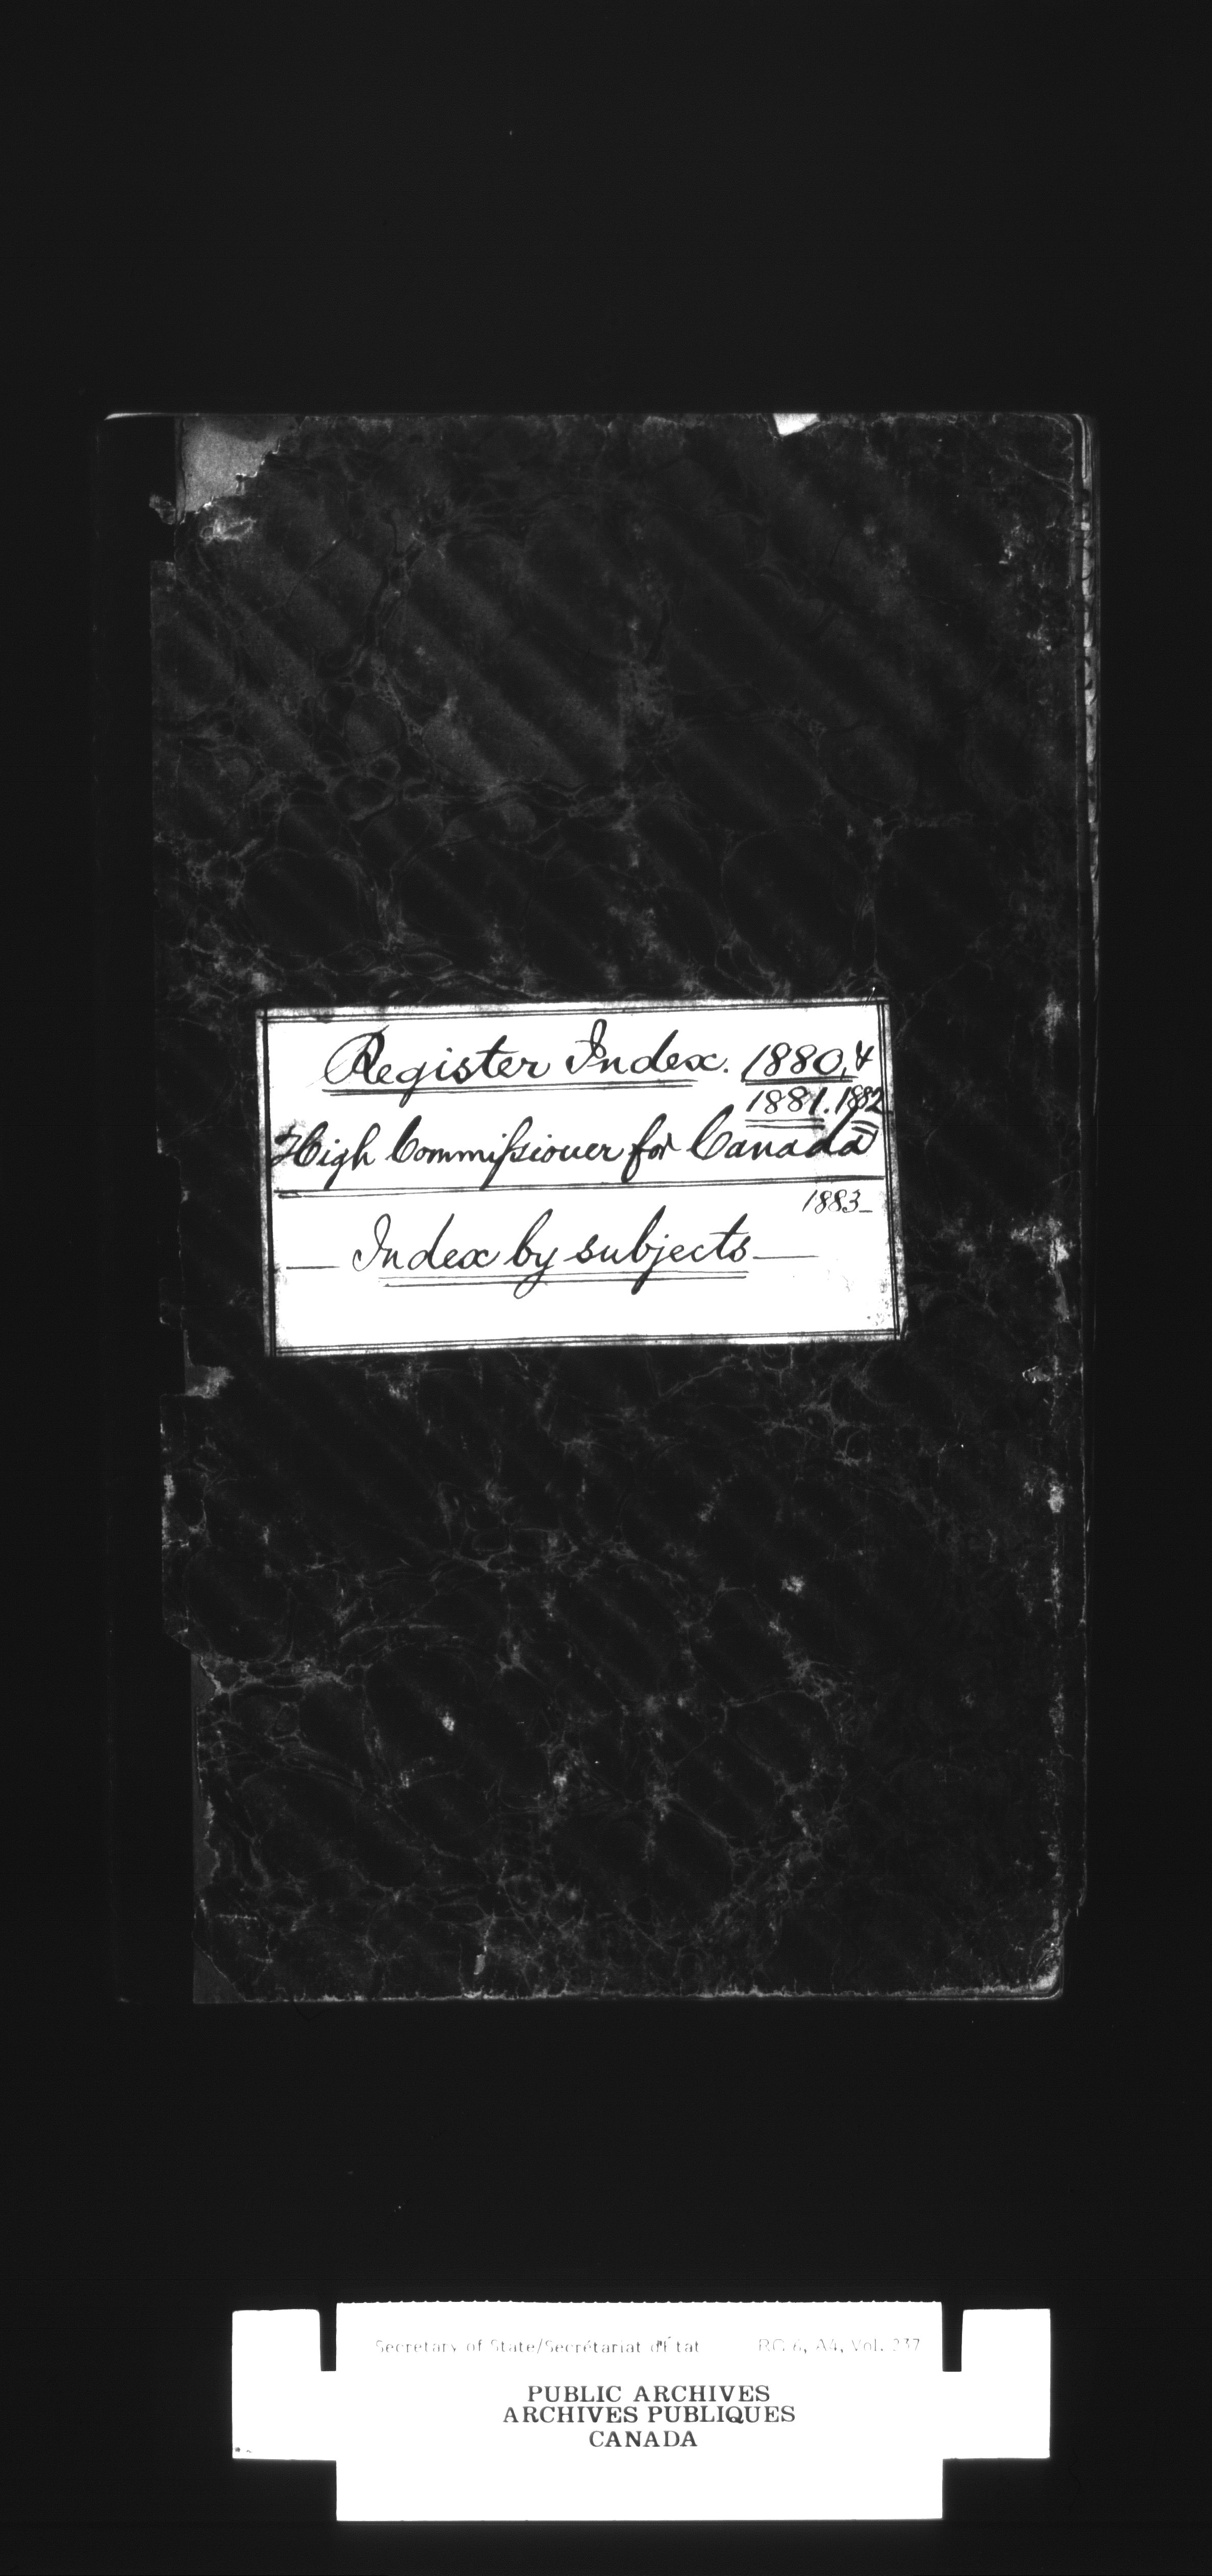 Register Index. 1880, &
1881. 1882
High Commissioner for Canada
1883_
— Index by subjects —
Secretary of State/Secrétariat d'État RG 6, A4, Vol. 237
PUBLIC ARCHIVES
ARCHIVES PUBLIQUES
CANADA